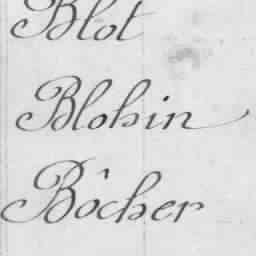 Blot
Blohin
Bôcher